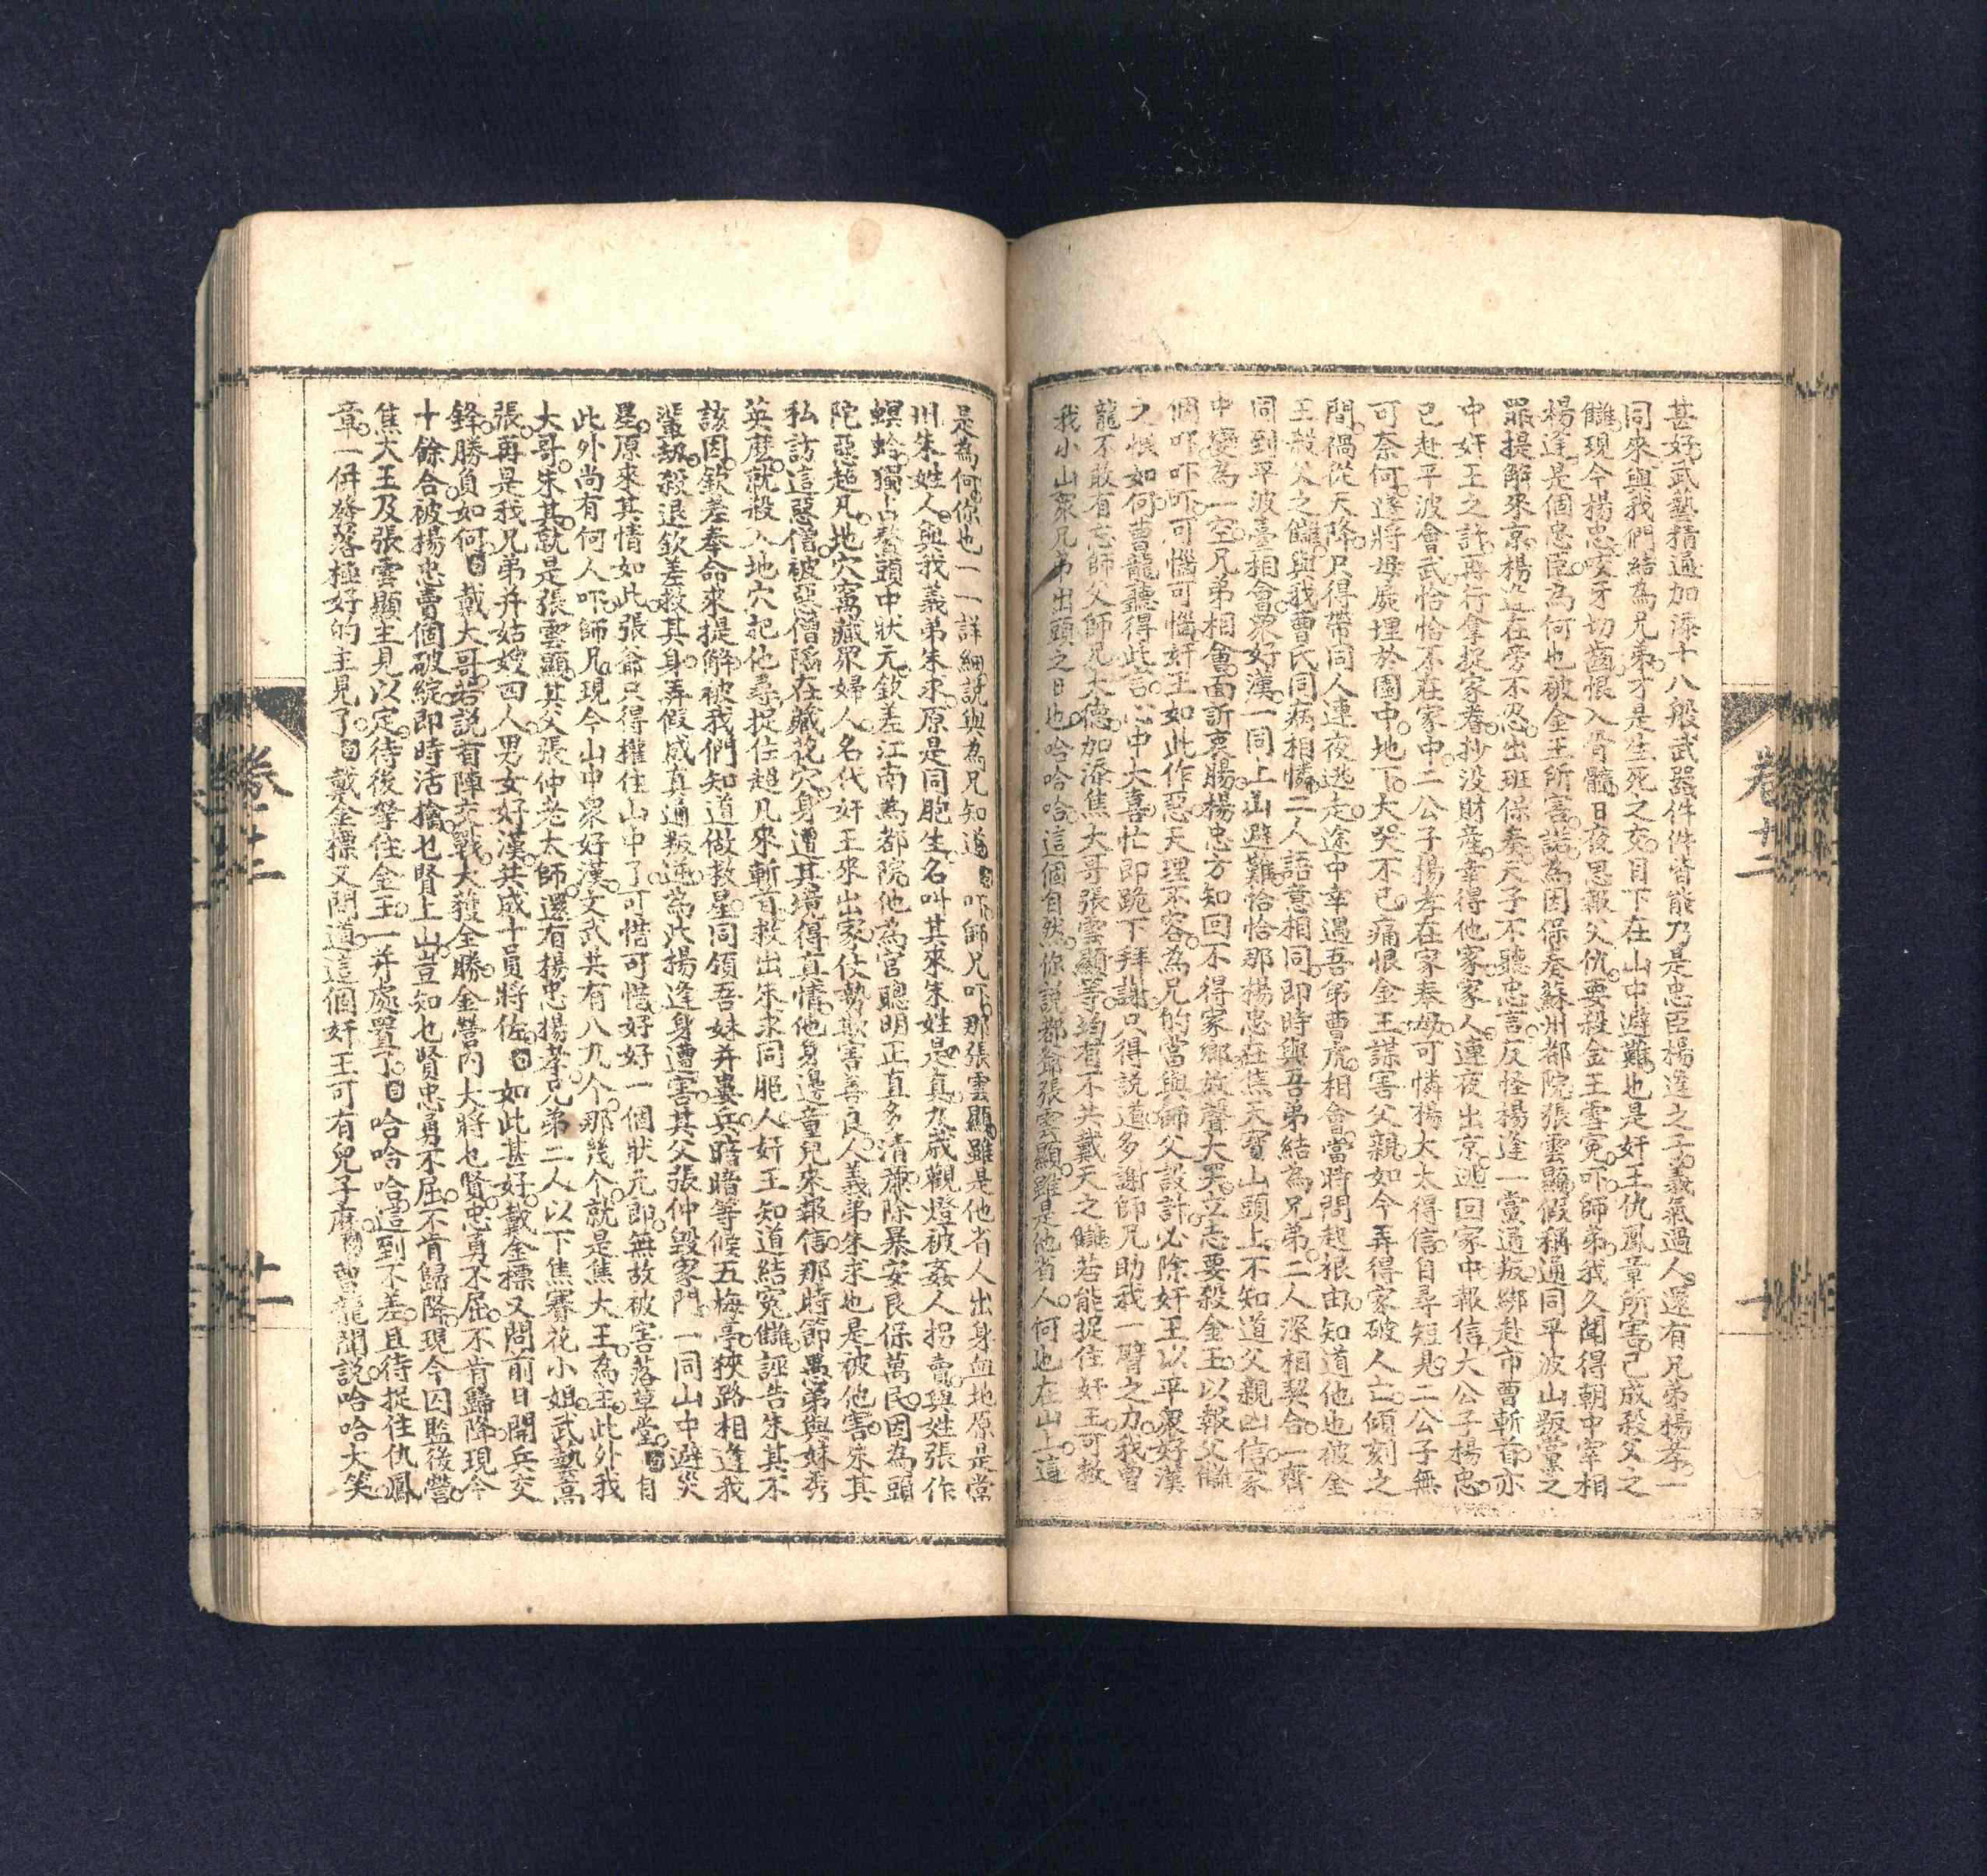 甚好武藝精通加添十八般武器件件皆能乃是忠臣楊逢之子義氣過人還有兄弟楊孝一
同來與我們結為兄弟才是生死之交目下在山中避難也是奸王仇鳳章所害已成殺父之
讎現今楊忠咬牙切齒恨入骨髓日夜思報父仇要殺金王雪冤吓師弟我久聞得朝中宰相
楊逢是個忠臣為何也被金王所害諾為因保奏蘇州都院張雲顯假稱通同平波山叛黨之
罪提解來京楊逢在旁不忍出班保奏天子不聽忠言反怪楊逢一黨通叛綁赴市曹斬首亦
中奸王之計再行拿捉家眷抄没財產幸得他家家人連夜出京逃回家中報信大公子楊忠
已赴平波會武恰恰不在家中二公子楊孝在家奉母可憐楊太太得信自尋短見二公子無
可奈何遂將母屍埋於園中地下大哭不已痛恨金王謀害父親如今弄得家破人亡傾刻之
間禍從天降只得帶同人連夜逃走途中幸遇吾弟曹虎相會當時問起根由知道他也被金
王殺父之讎與我曹氏同病相憐二人語意相同即時與吾弟結為兄弟二人深相契合一齊
同到平波臺相會眾好漢一同上山避難恰恰那楊忠在焦天寶山頭上不知道父親凶信家
中變為一空兄弟相會面訢衷腸楊忠方知回不得家鄉放聲大哭立志要殺金王以報父讎
個吓吓吓可惱可惱奸王如此作惡天理不容為兄的當與師父設計必除奸王以平眾好漢
之恨如何曹龍聽得此言心中大喜忙即跪下拜謝只得説道多謝師兄助我一臂之力我曹
龍不敢有忘師父師兄大德加添焦大哥張雲顯等均有不共戴天之讎若能捉住奸王可救
我小山眾兄弟出頭之日也哈哈哈這個自然你説都爺張雲顯雖是他省人何也在山上這
是為何你也一一詳細説與為兄知道吓師兄吓那張雲顯雖是他省人出身血地原是常
州朱姓人與我義弟朱求原是同胞生名叫其來朱姓是真九歲觀燈被姦人拐賣與姓張作
螟蛉獨占鰲頭中狀元欽差江南為都院他為官聰明正直多清亷除暴安良保萬民因為頭
陀惡超凡地穴窩藏眾婦人名代奸王來出家仗勢欺害善良人義弟朱求也是被他害朱其
私訪這惡僧被惡僧隱在藏花穴身遭其壙得真情他身邊童兒來報信那時節愚弟與妹秀
英麽就殺入地穴把他尋捉住超凡來斬首救出朱求同胞人奸王知道結冤讎誣告朱其不
該因欽差奉命來提解被我們知道做救星同領吾妹并婁兵暗暗等候五梅亭狹路相逢我
輩劫殺退欽差救其身弄假咸真通叛逆為此揚逢身遭害其父張仲毀家門一同山中避災
星原來其情如此張爺只得權住山中了可惜可惜好好一個狀元郎無故被害落草堂自
此外尚有何人吓師兄現今山中眾好漢文武共有八九个那幾个就是焦大王為王此外我
大哥朱其就是張雲顯其父張仲老太師還有揚忠揚孝兄弟二人以下焦賽花小姐武藝高
張再是我兄弟并姑嫂四人男女好漢共成十員將佐如此甚好戴金標又問前日開兵交
鋒勝負如何戴大哥若説有陣交戰大獲全勝金營内大將也賢忠勇不屈不肯歸降現今
十餘合被揚忠賣個破綻即時活擒乜賢上山豈知乜賢忠勇不屈不肯歸降現今囚監後營
焦大王及張雲顯主見以定待後拏住金王一并處置了哈哈哈這到不差且待捉住仇鳳
章一併發落極好的主見了戴金標又問道這個奸王可有兒子麽曹龍聞説哈哈大笑
卷十二
卷十二